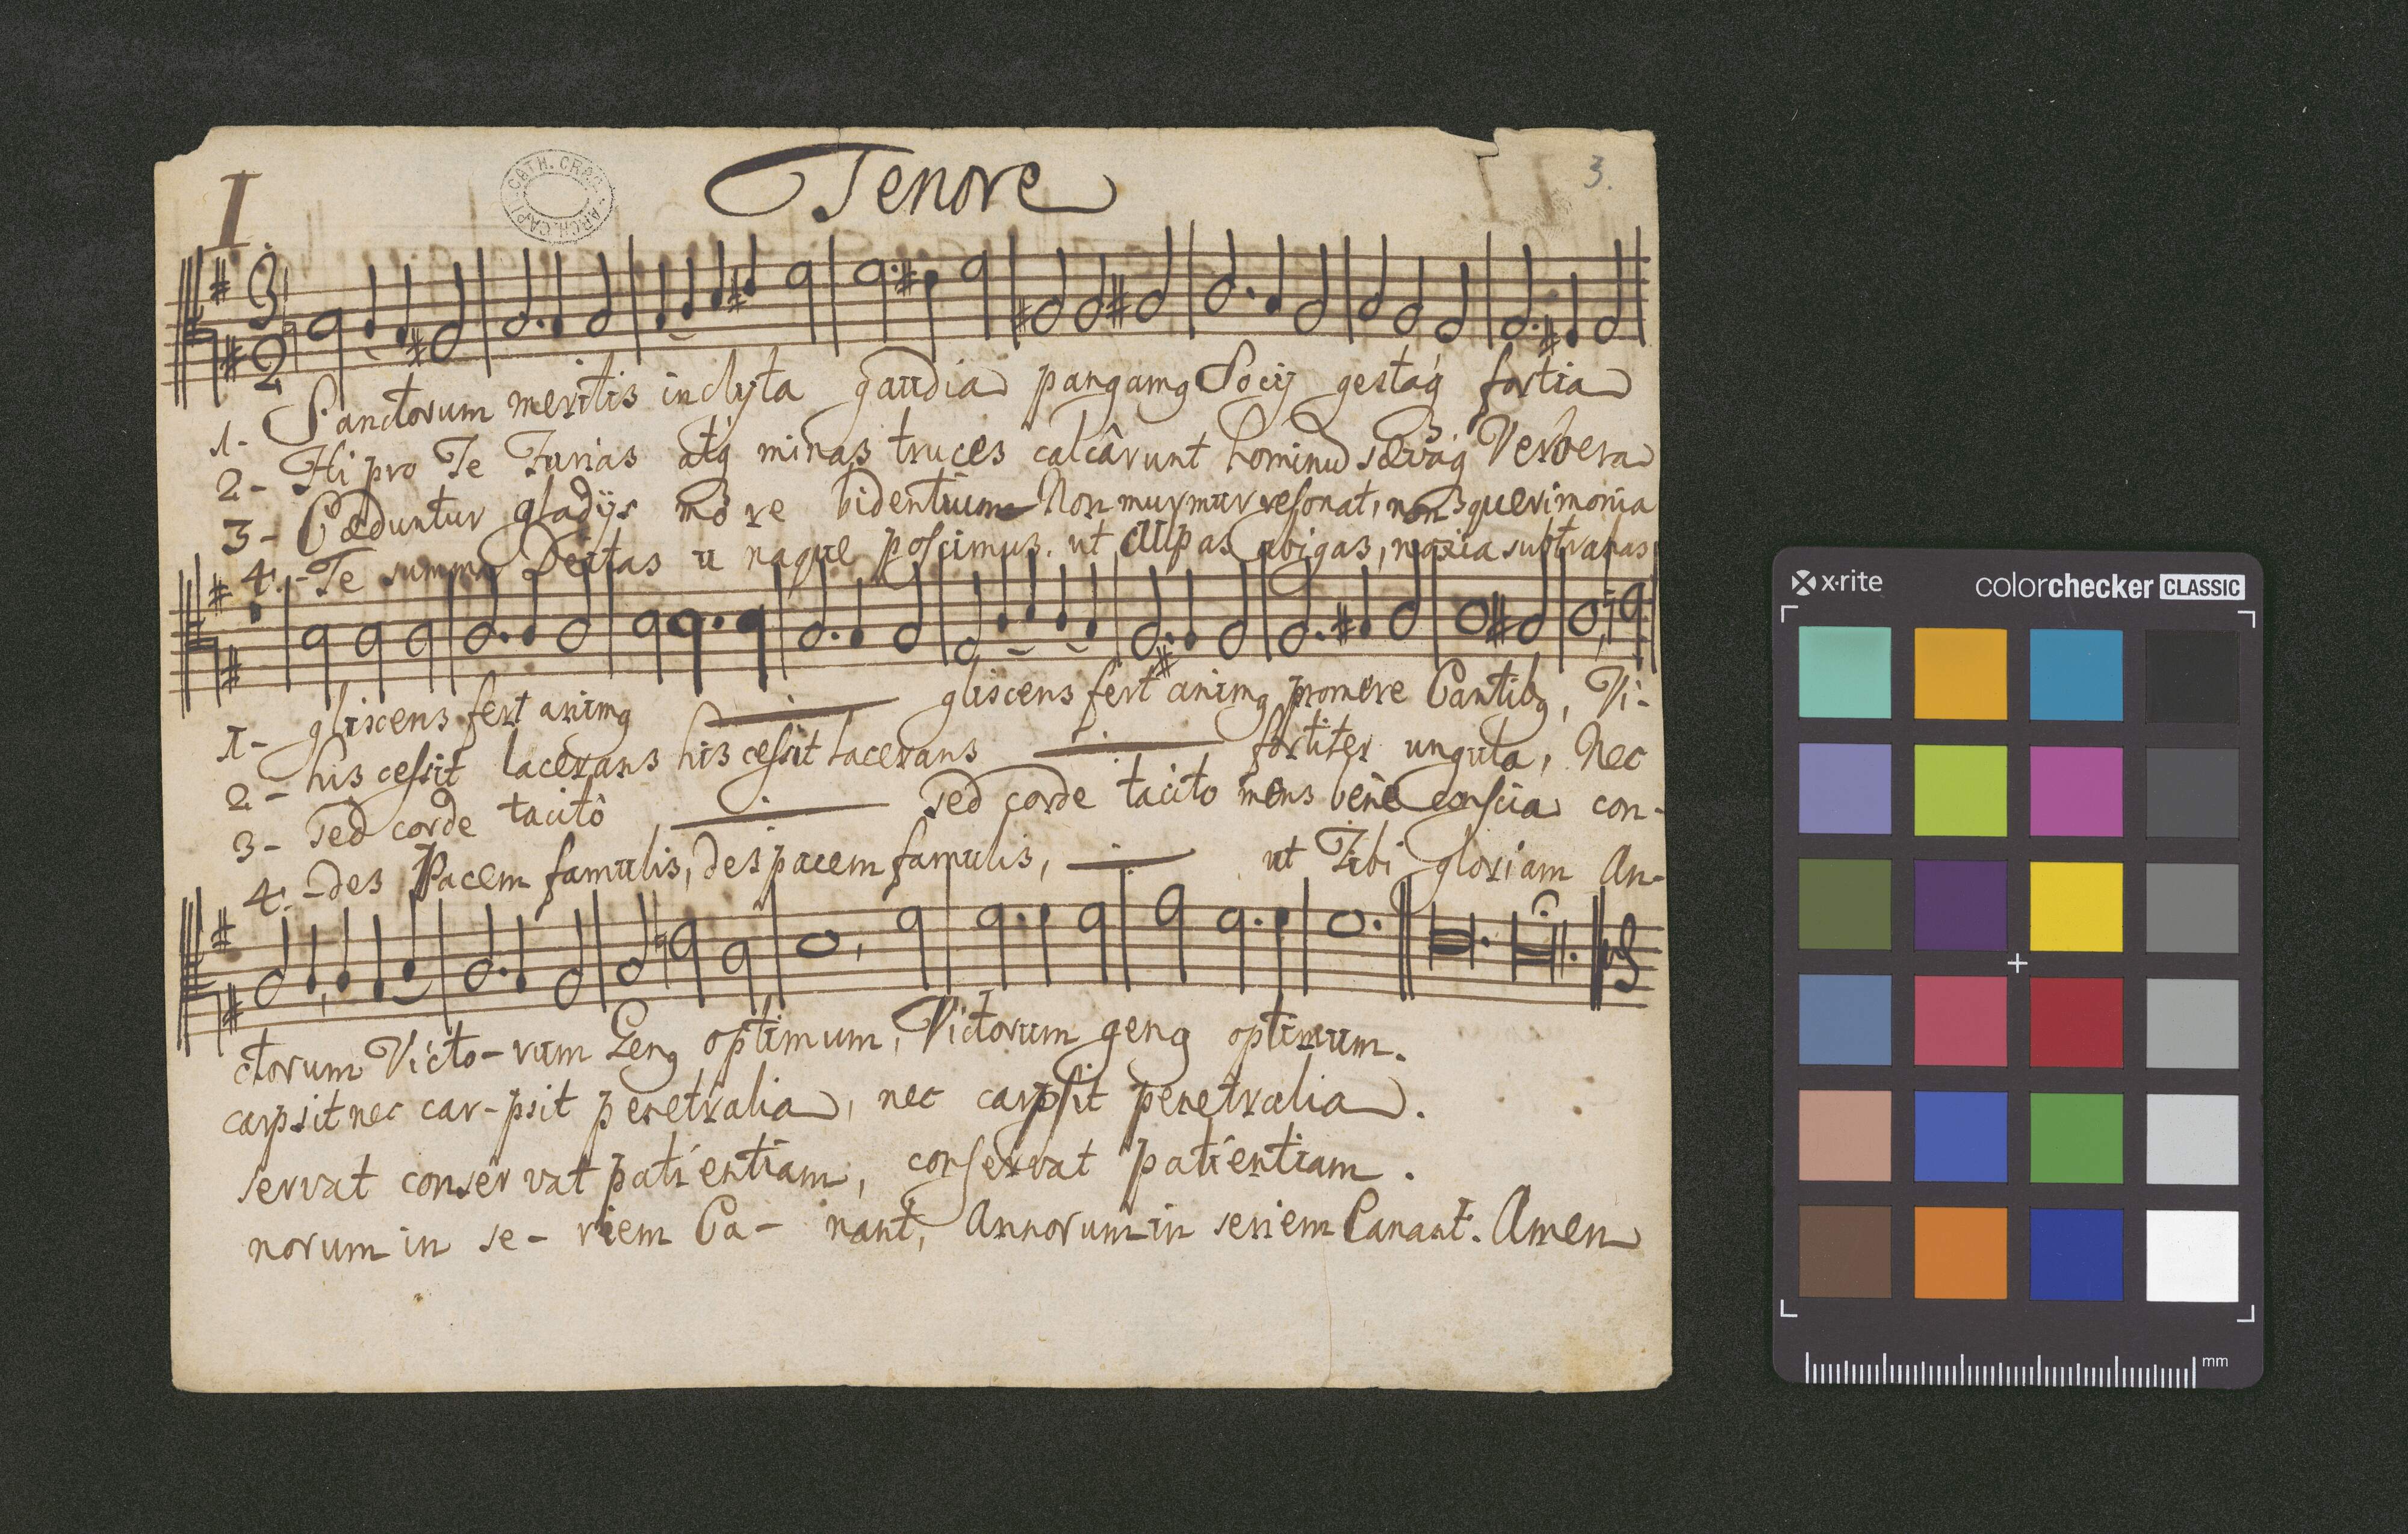 I.
CATH. CRAC. ARCH. CAPI.
Tenore
3.
3
2
1- Sanctorum meritis inclyta gaudia pangamq Socij gestaq́ fortia
2- Hi pro Te Furias atq́ minas truces calcârunt hominũ sævaq́ Verbera
3- Cæduntur gladijs more bidentium Non murmur resonat, non querimonia
4.- Te summa Deitas unaque poscimus. ut culpas abigas, noxia subtrahas
1- gliscens fert animq gliscens fert animq promere Cantibq, Vi-
2- his cessit lacerans his cessit lacerans fortiter ungula, Nec
3- Sed corde tacitô Sed corde tacito mens benè conscia con-
4.- des Pacem famulis, des pacem famulis, ut Tibi gloriam An-
ctorum Victo-rum Genq optimum, Victorum genq optimum.
carpsit nec car-psit penetralia, nec carpsit penetralia.
servat conservat patientiam, conservat patientiam.
norum in se-riem Ca-nant, Annorum in seriem Canant. Amen
x-rite colorchecker CLASSIC
mm